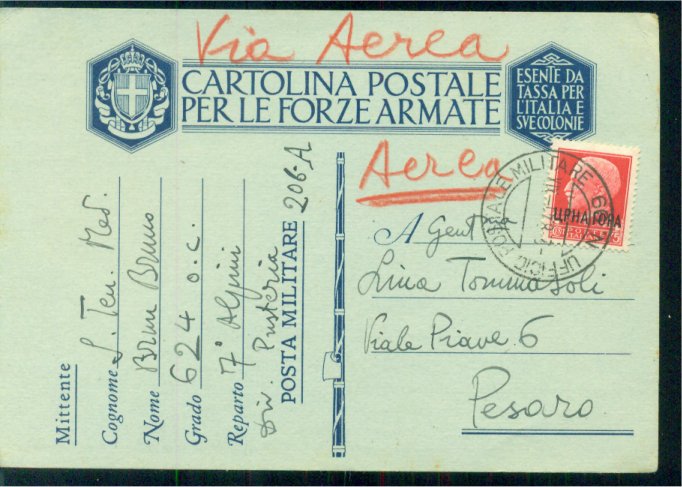 Via Aerea
CARTOLINA POSTALE
PER LE FORZE ARMATE
ESENTE DA
TASSA PER
L'ITALIA E
SVE COLONIE
Aerea
UFFICIO POSTALE MILITARE
A Gent
Lina Tommasoli
Viale Piave 6
Pesaro
Mittente
Cognome S. Ten. Med.
Nome Bruno
Grado 624 o.c.
Reparto 7° Alpini
Div. Pusteria
POSTA MILITARE 206-A